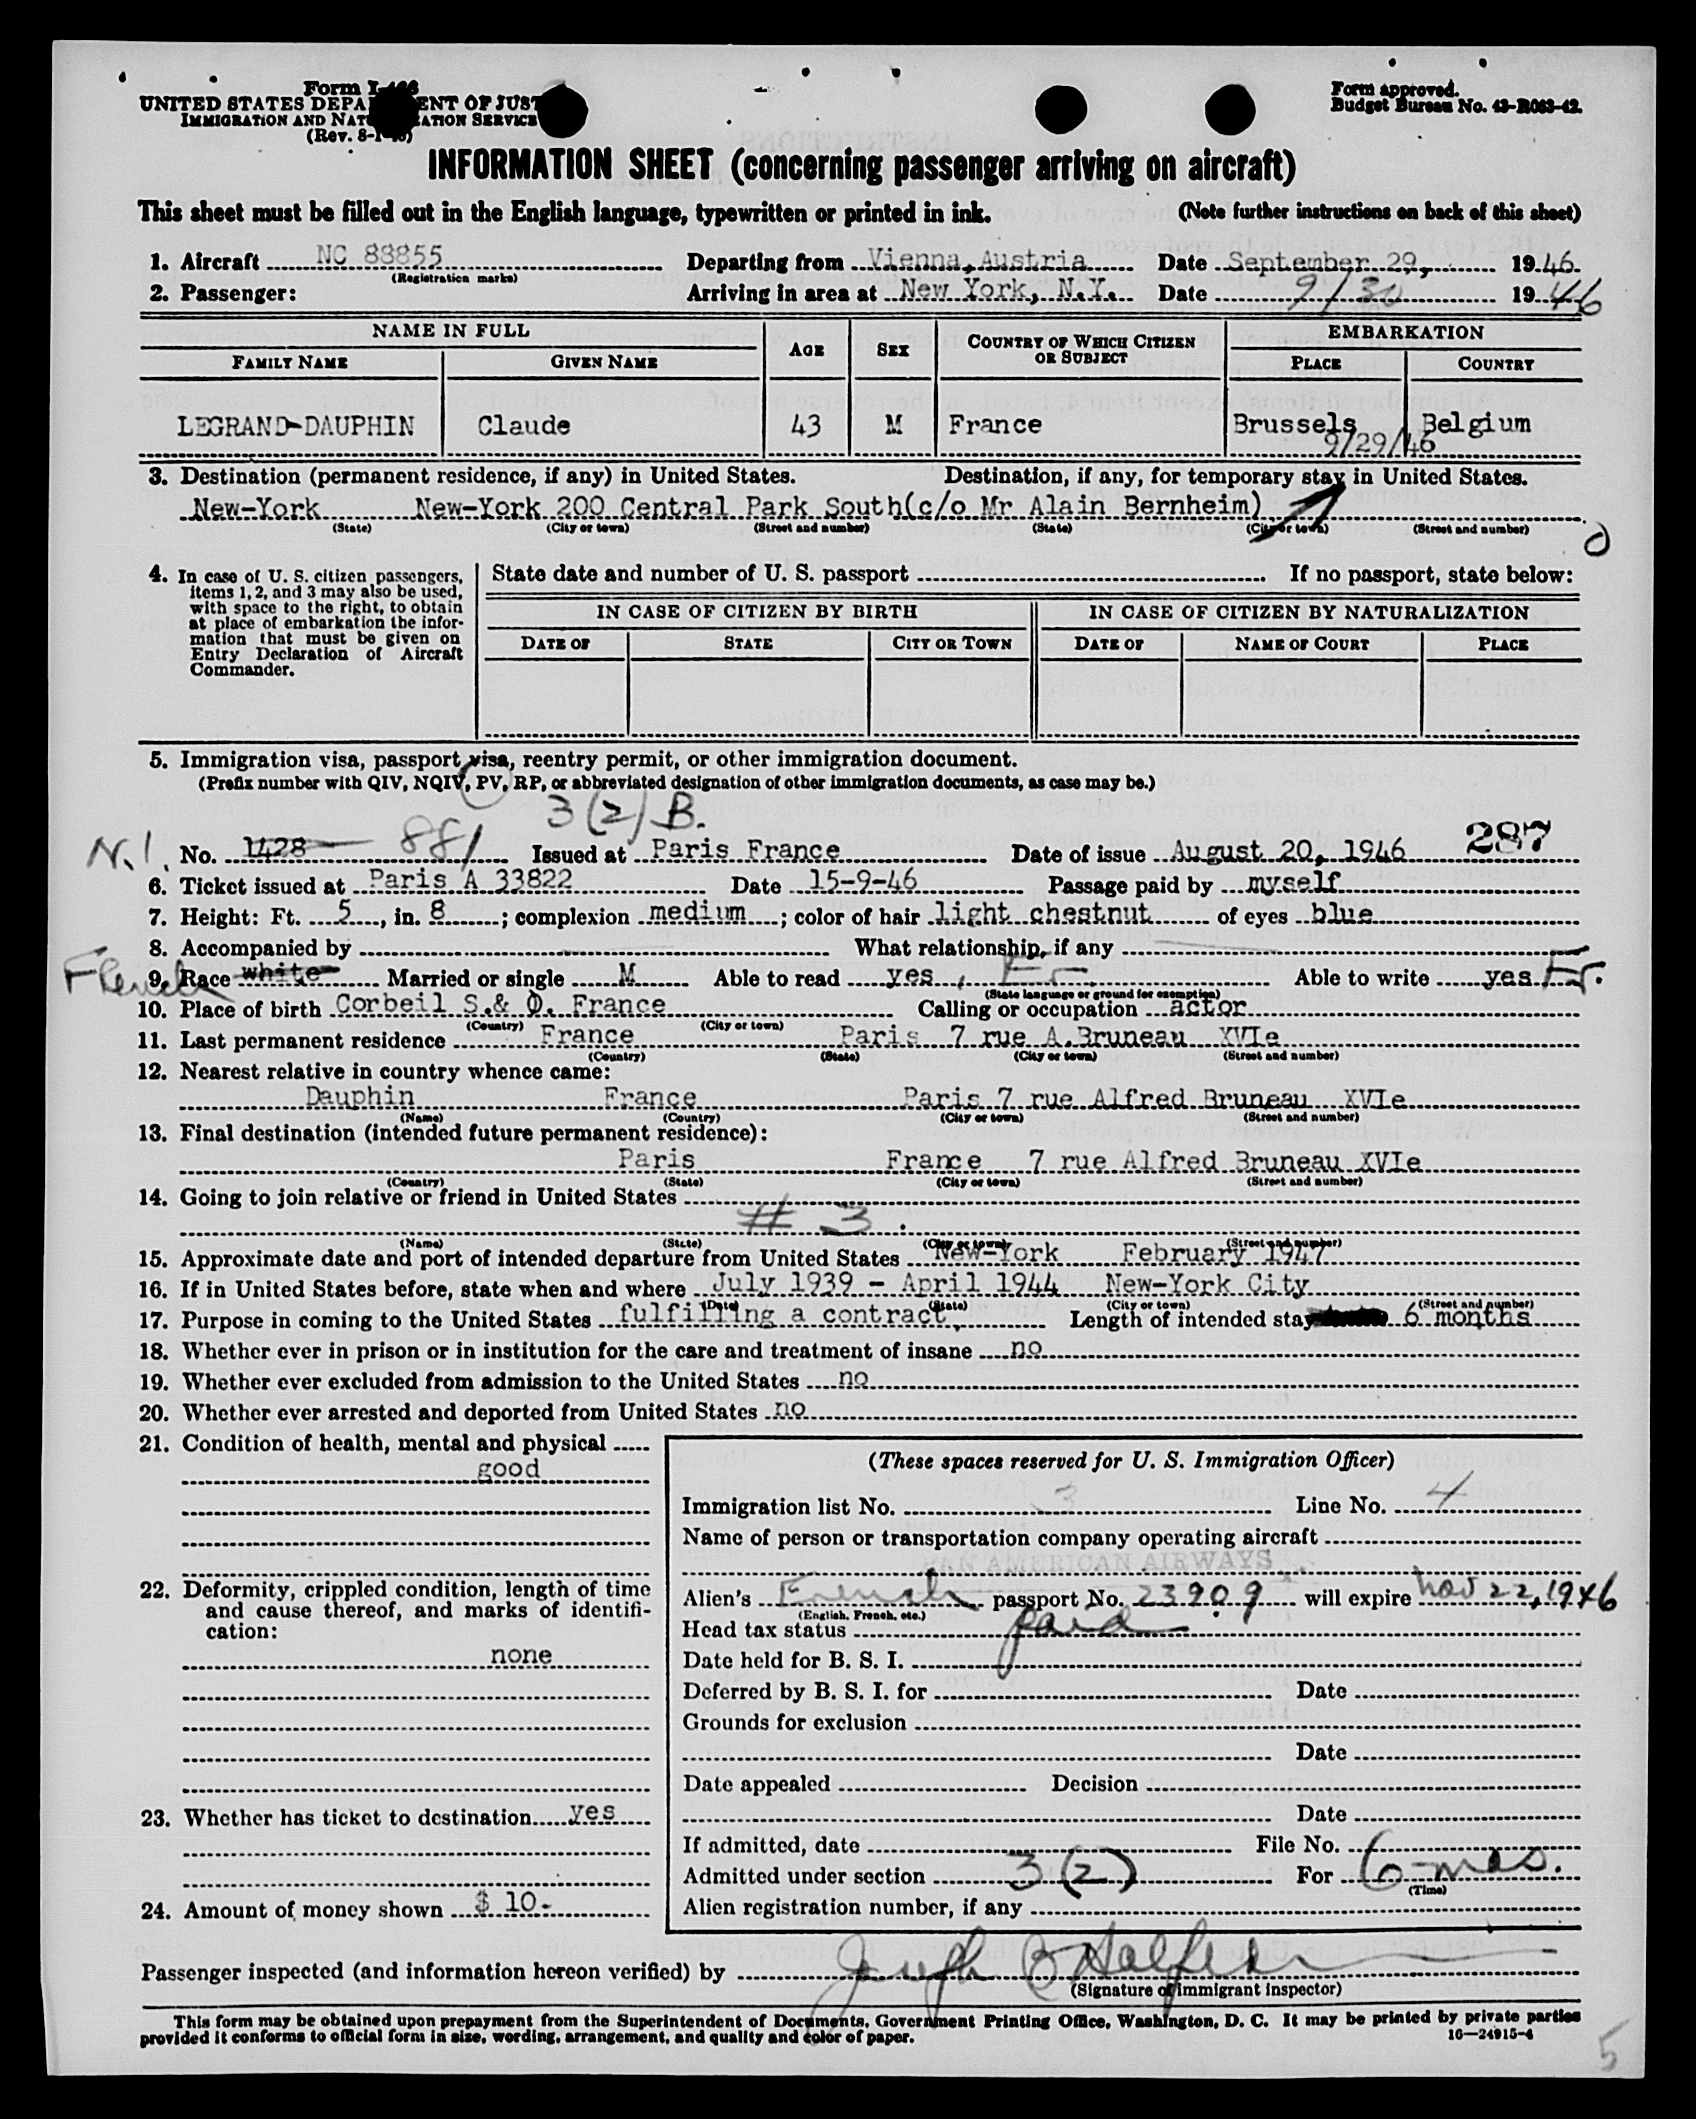 Form I-466
UNITED STATES DEPARTMENT OF JUSTICE
IMMIGRATION AND NATURALIZATION SERVICE
(Rev. 8-1-45)
Form approved.
Budget Bureau No. 43-R063-42.
INFORMATION SHEET (concerning passenger arriving on aircraft)
This sheet must be filled out in the English language, typewritten or printed in ink. (Note further instructions on back of this sheet)
1. Aircraft NC 88855 Departing from Vienna, Austria Date September 29, 1946.
(Registration marks)
2. Passenger: Arriving in area at New York, N.Y. Date 9/30 1946
NAME IN FULL AGE SEX COUNTRY OF WHICH CITIZEN OR SUBJECT EMBARKATION
FAMILY NAME GIVEN NAME PLACE COUNTRY
LEGRAND-DAUPHIN Claude 43 M France Brussels Belgium
9/29/46
3. Destination (permanent residence, if any) in United States. Destination, if any, for temporary stay in United States.
New-York New-York 200 Central Park South(c/o Mr Alain Bernheim)
(State) (City or town) (Street and number) (State) (City or town) (Street and number)
4. In case of U. S. citizen passengers, items 1, 2, and 3 may also be used, with space to the right, to obtain at place of embarkation the information that must be given on Entry Declaration of Aircraft Commander.
State date and number of U. S. passport If no passport, state below:
IN CASE OF CITIZEN BY BIRTH IN CASE OF CITIZEN BY NATURALIZATION
DATE OF STATE CITY OR TOWN DATE OF NAME OF COURT PLACE
5. Immigration visa, passport visa, reentry permit, or other immigration document.
(Prefix number with QIV, NQIV, PV, RP, or abbreviated designation of other immigration documents, as case may be.)
3(2) B.
N.I. No. 1428 881 Issued at Paris France Date of issue August 20, 1946 287
6. Ticket issued at Paris A 33822 Date 15-9-46 Passage paid by myself
7. Height: Ft. 5, in. 8; complexion medium; color of hair light chestnut of eyes blue
8. Accompanied by What relationship, if any
French 9. Race white Married or single M Able to read yes, Fr. Able to write yes Fr.
(State language or ground for exemption)
10. Place of birth Corbeil S.& O. France Calling or occupation actor
(Country) (City or town)
11. Last permanent residence France Paris 7 rue A.Bruneau XVIe
(Country) (State) (City or town) (Street and number)
12. Nearest relative in country whence came:
Dauphin France Paris 7 rue Alfred Bruneau XVIe
(Name) (Country) (City or town) (Street and number)
13. Final destination (intended future permanent residence):
Paris France 7 rue Alfred Bruneau XVIe
(Country) (State) (City or town) (Street and number)
14. Going to join relative or friend in United States
# 3.
(Name) (State) (City or town) (Street and number)
15. Approximate date and port of intended departure from United States New-York February 1947
16. If in United States before, state when and where July 1939 - April 1944 New-York City
(Date) (State) (City or town) (Street and number)
17. Purpose in coming to the United States fulfilling a contract, Length of intended stay 6 months
18. Whether ever in prison or in institution for the care and treatment of insane no
19. Whether ever excluded from admission to the United States no
20. Whether ever arrested and deported from United States no
21. Condition of health, mental and physical
good
22. Deformity, crippled condition, length of time and cause thereof, and marks of identification:
none
23. Whether has ticket to destination yes
24. Amount of money shown $ 10-
(These spaces reserved for U. S. Immigration Officer)
Immigration list No. 3 Line No. 4
Name of person or transportation company operating aircraft
PAN AMERICAN AIRWAYS
Alien's French passport No. 23909 will expire Nov 22, 1946
(English, French, etc.)
Head tax status paid
Date held for B. S. I.
Deferred by B. S. I. for Date
Grounds for exclusion
Date
Date appealed Decision
Date
If admitted, date File No.
Admitted under section 3(2) For 6 mos.
(Time)
Alien registration number, if any
Passenger inspected (and information hereon verified) by Joseph
(Signature of immigrant inspector)
This form may be obtained upon prepayment from the Superintendent of Documents, Government Printing Office, Washington, D. C. It may be printed by private parties
provided it conforms to official form in size, wording, arrangement, and quality and color of paper. 16—24915-4
5